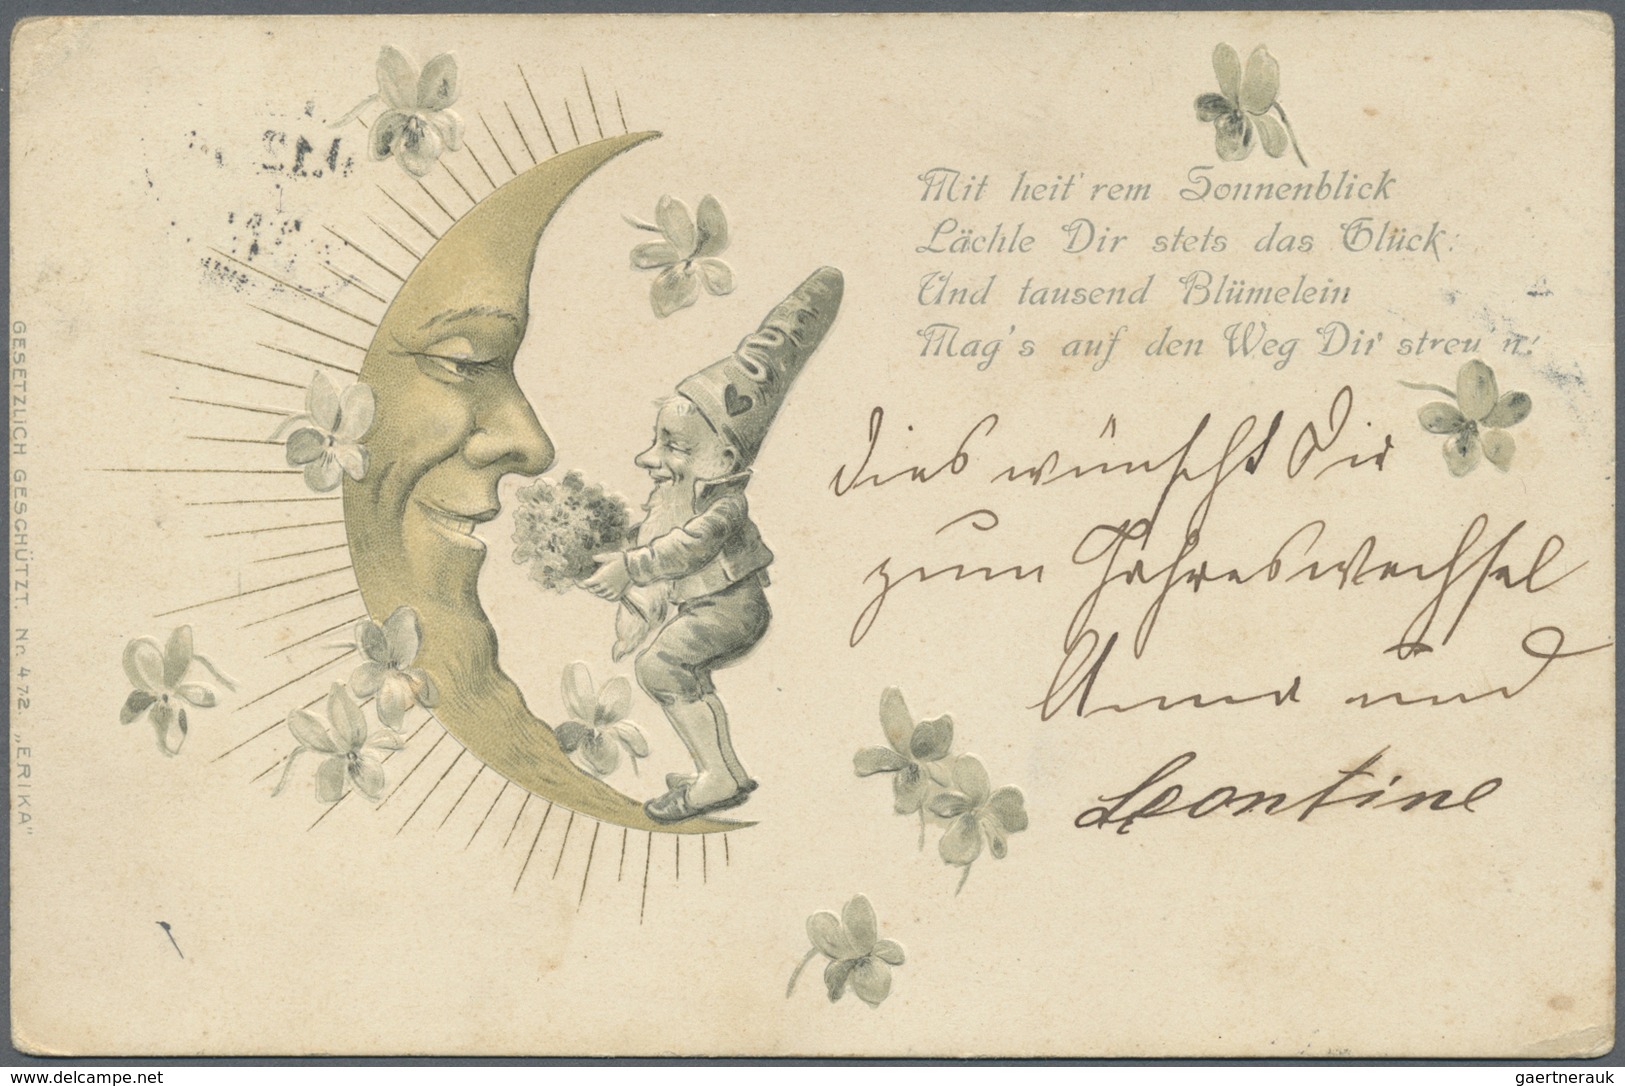 Mit heit'rem Sonnenblick
Lächle Dir stets das Glück:
Und tausend Blümelein
Mag's auf den Weg Dir streu'n!
Dies wünscht Dir
zum Jahreswechsel
Anna und
Leontine
GESETZLICH GESCHÜTZT. Nr. 472. „ERIKA"
© www.delcampe.net
gaertnerauk